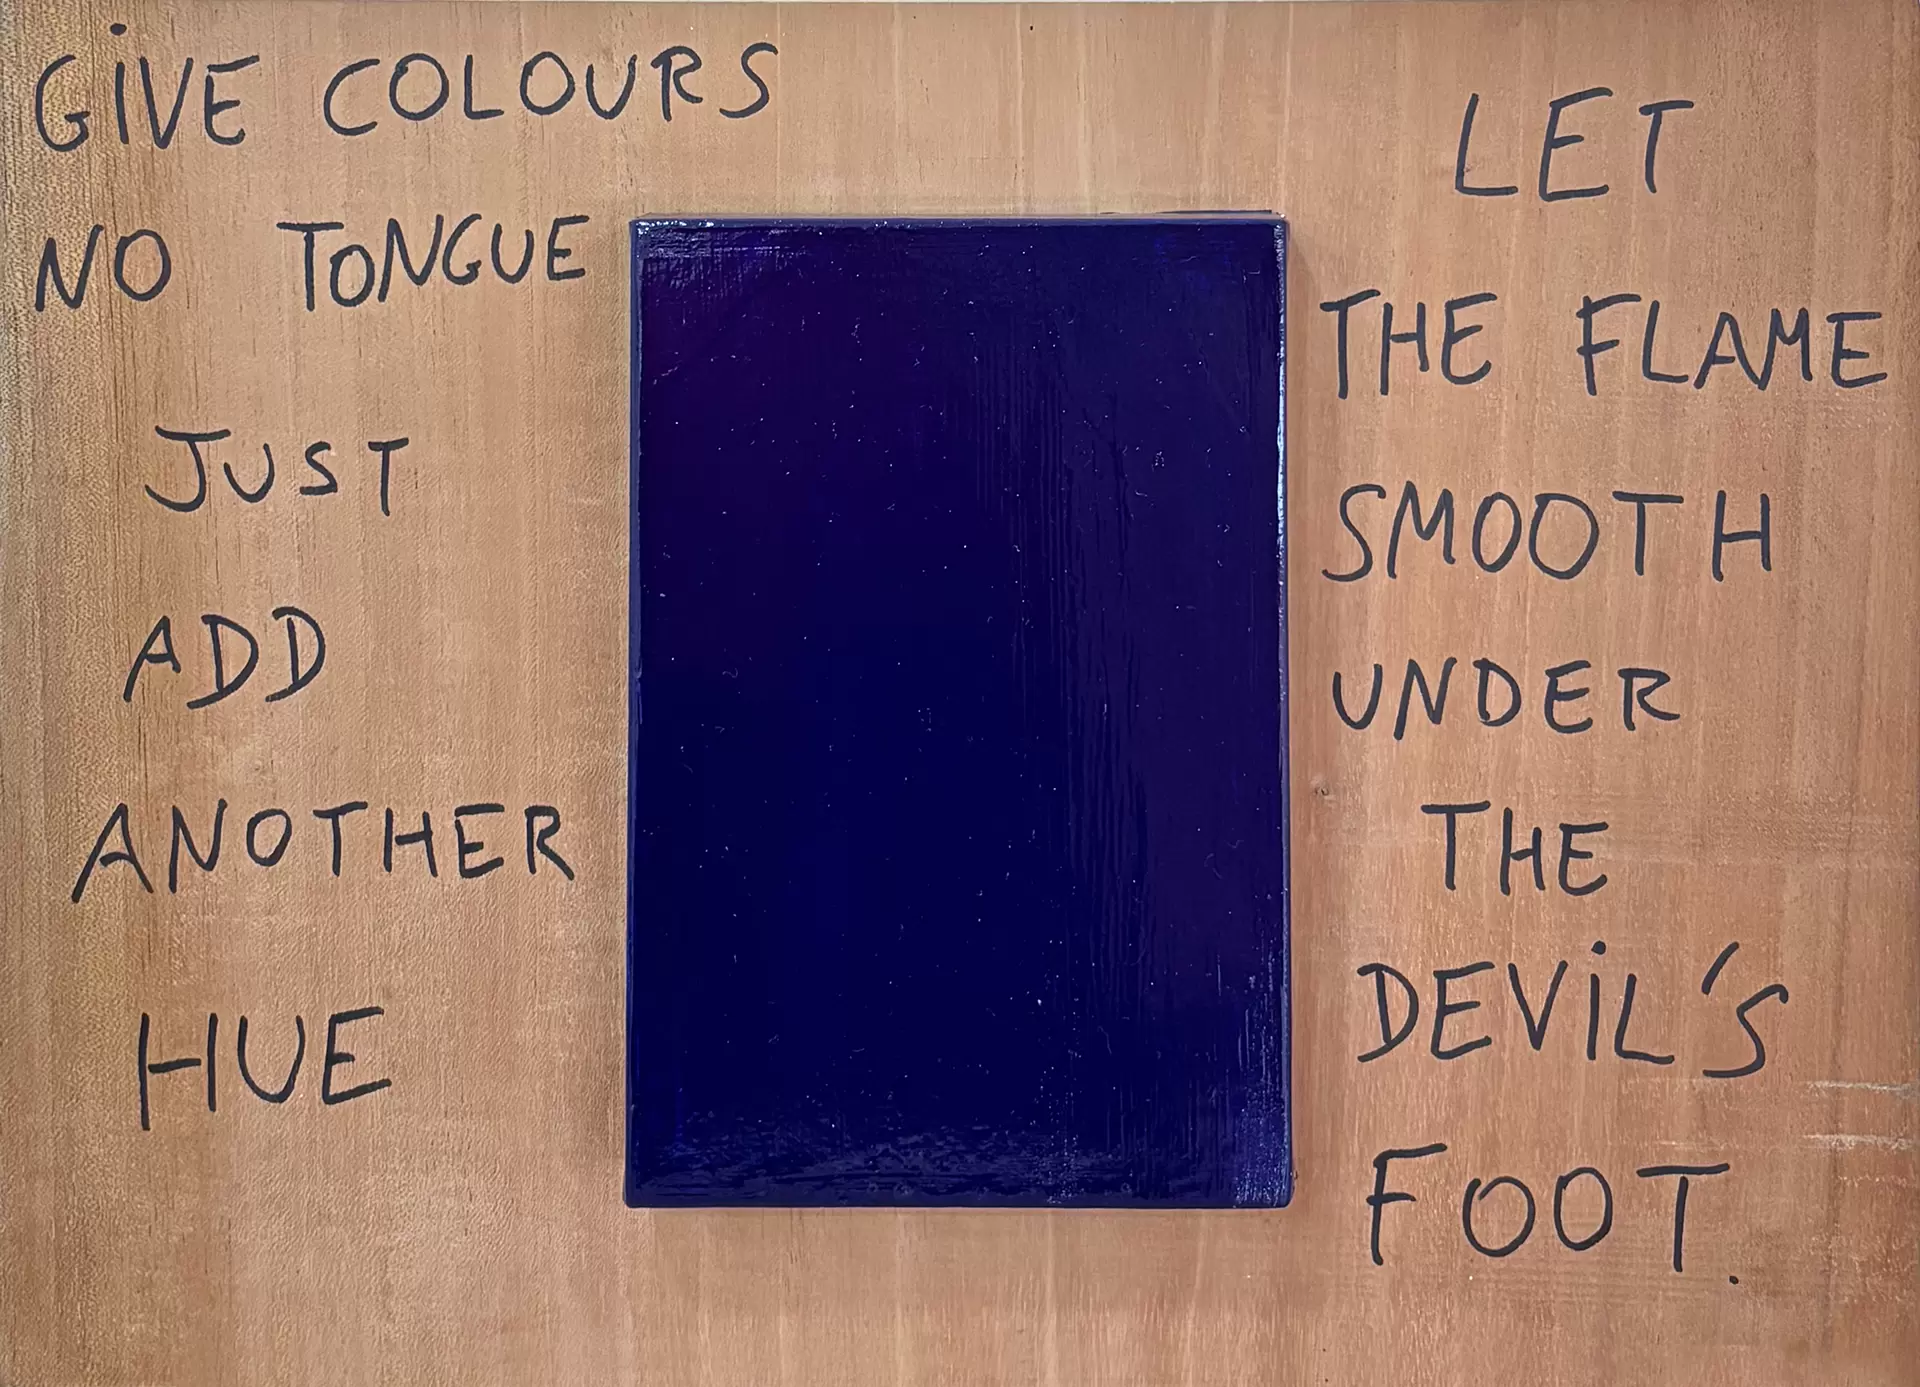 GiVE COLOURS
NO TONGUE
JUST
ADD
ANOTHER
HUE
LET
THE FLAME
SMOOTH
UNDER
THE
DEViL'S
FOOT.